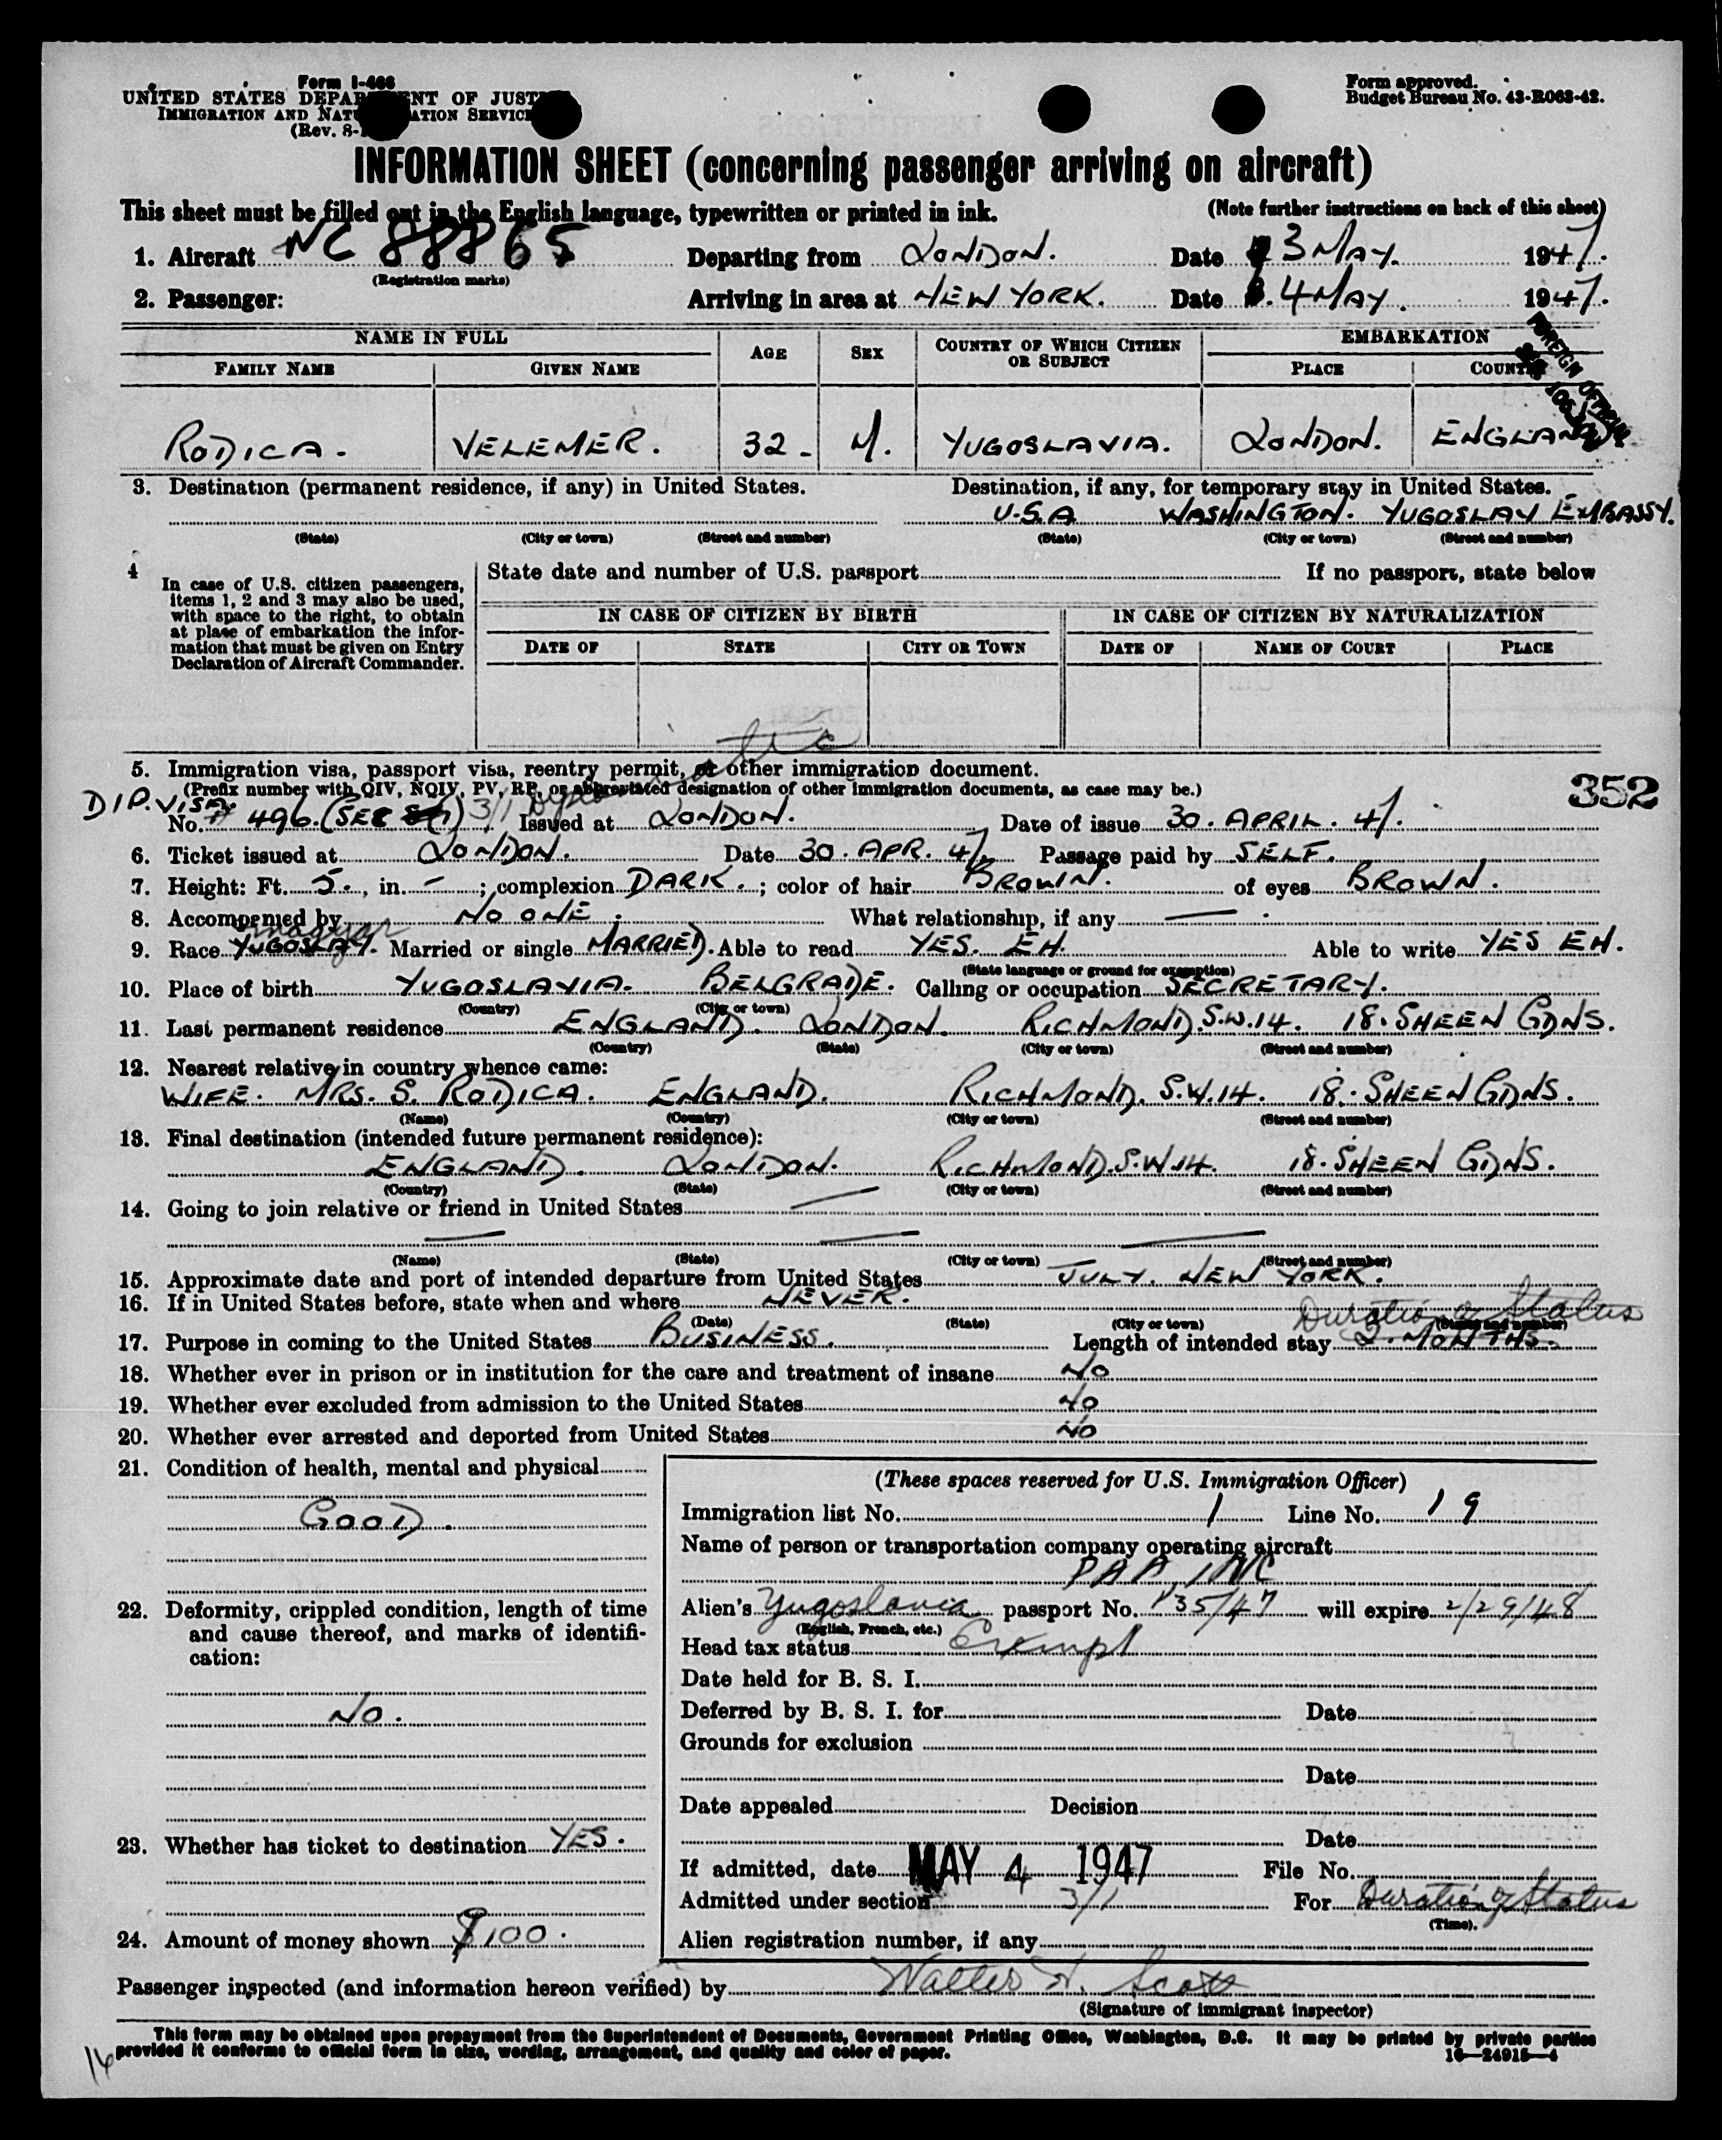 Form I-466
UNITED STATES DEPARTMENT OF JUSTICE
IMMIGRATION AND NATURALIZATION SERVICE
(Rev. 8-
Form approved.
Budget Bureau No. 43-R063-42.
INFORMATION SHEET (concerning passenger arriving on aircraft)
This sheet must be filled out in the English language, typewritten or printed in ink. (Note further instructions on back of this sheet)
1. Aircraft NC 88865 Departing from LONDON. Date 3 MAY. 1947.
(Registration marks)
2. Passenger: Arriving in area at NEW YORK. Date 4 MAY. 1947.
NAME IN FULL AGE SEX COUNTRY OF WHICH CITIZEN OR SUBJECT EMBARKATION
FAMILY NAME GIVEN NAME PLACE COUNTRY
FOREIGN OFFICIAL
RODICA. VELEMER. 32. M. YUGOSLAVIA. LONDON. ENGLAND
3. Destination (permanent residence, if any) in United States. Destination, if any, for temporary stay in United States.
U.S.A WASHINGTON. YUGOSLAV EMBASSY.
(State) (City or town) (Street and number) (State) (City or town) (Street and number)
4 In case of U.S. citizen passengers, items 1, 2 and 3 may also be used, with space to the right, to obtain at place of embarkation the information that must be given on Entry Declaration of Aircraft Commander.
State date and number of U.S. passport If no passport, state below
IN CASE OF CITIZEN BY BIRTH IN CASE OF CITIZEN BY NATURALIZATION
DATE OF STATE CITY OR TOWN DATE OF NAME OF COURT PLACE
5. Immigration visa, passport visa, reentry permit, or other immigration document.
(Prefix number with QIV, NQIV, PV, RP, or abbreviated designation of other immigration documents, as case may be.)
352
DIP. VISA.
No. 496. (SEC 3/1 Diplomatic Issued at LONDON. Date of issue 30. APRIL. 47.
6. Ticket issued at LONDON. Date 30. APR. 47. Passage paid by SELF.
7. Height: Ft. 5., in. – ; complexion DARK. ; color of hair BROWN. of eyes BROWN.
8. Accompanied by NO ONE. What relationship, if any —
magyar
9. Race YUGOSLAV. Married or single MARRIED. Able to read YES. EH. Able to write YES EH.
(State language or ground for exemption)
10. Place of birth YUGOSLAVIA. BELGRADE. Calling or occupation SECRETARY.
(Country) (City or town)
11. Last permanent residence ENGLAND. LONDON. RICHMOND. S.W.14. 18. SHEEN GDNS.
(Country) (State) (City or town) (Street and number)
12. Nearest relative in country whence came:
WIFE. MRS. S. RODICA. ENGLAND. RICHMOND. S.W.14. 18. SHEEN GDNS.
(Name) (Country) (City or town) (Street and number)
13. Final destination (intended future permanent residence):
ENGLAND. LONDON. RICHMOND. S.W.14. 18. SHEEN GDNS.
(Country) (State) (City or town) (Street and number)
14. Going to join relative or friend in United States —
— — —
(Name) (State) (City or town) (Street and number)
15. Approximate date and port of intended departure from United States JULY. NEW YORK.
16. If in United States before, state when and where NEVER.
(Date) (State) (City or town) (Street and number)
Duration of Status
17. Purpose in coming to the United States BUSINESS. Length of intended stay 2. MONTHS.
18. Whether ever in prison or in institution for the care and treatment of insane NO
19. Whether ever excluded from admission to the United States NO
20. Whether ever arrested and deported from United States NO
21. Condition of health, mental and physical
GOOD.
22. Deformity, crippled condition, length of time and cause thereof, and marks of identification:
NO.
23. Whether has ticket to destination YES.
24. Amount of money shown $100.
(These spaces reserved for U.S. Immigration Officer)
Immigration list No. 1 Line No. 19
Name of person or transportation company operating aircraft
PAA, INC
Alien's Yugoslavia passport No. 135/47 will expire 2/29/48
(English, French, etc.)
Head tax status Exempt
Date held for B. S. I.
Deferred by B. S. I. for Date
Grounds for exclusion
Date
Date appealed Decision
Date
If admitted, date MAY 4 1947 File No.
Admitted under section 3/1 For Duration of Status
(Time).
Alien registration number, if any
Passenger inspected (and information hereon verified) by Walter H. Scott
(Signature of immigrant inspector)
This form may be obtained upon prepayment from the Superintendent of Documents, Government Printing Office, Washington, D.C. It may be printed by private parties
provided it conforms to official form in size, wording, arrangement, and quality and color of paper.
16—24915—4
16